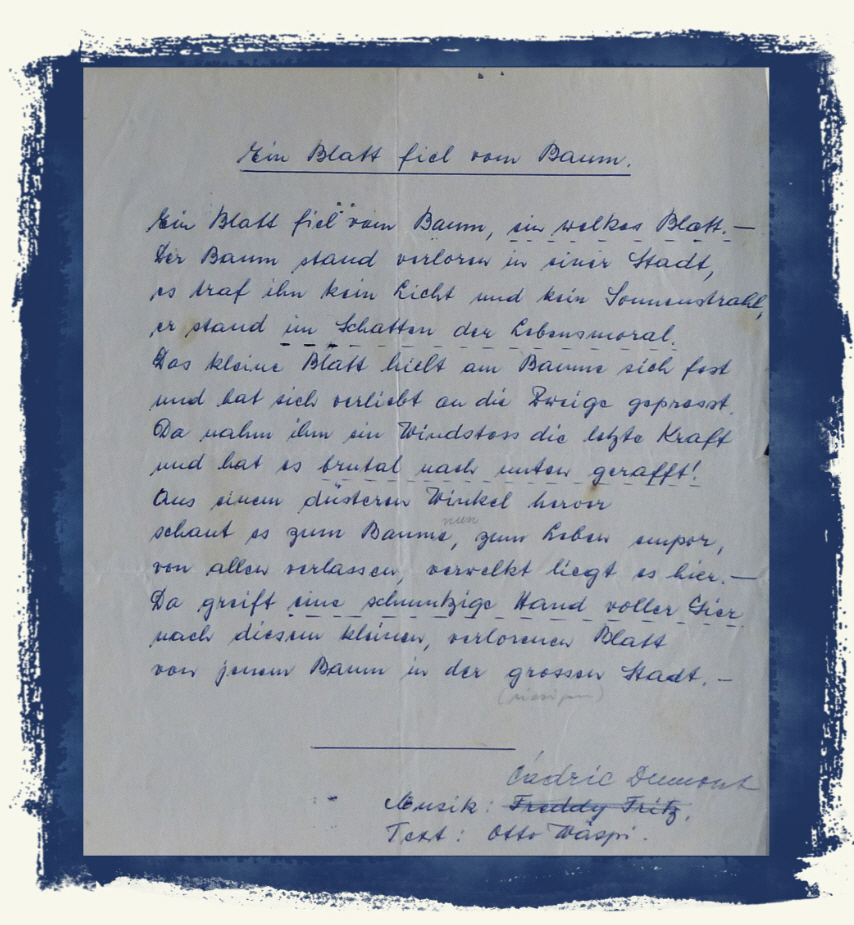 Ein Blatt fiel vom Baum.
Ein Blatt fiel vom Baum, ein welkes Blatt. —
Der Baum stand verloren in einer Stadt,
es traf ihn kein Licht und kein Sonnenstrahl,
er stand im Schatten der Lebensmoral.
Das kleine Blatt hielt am Baume sich fest
und hat sich verliebt an die Zweige gepresst.
Da nahm ihm ein Windstoss die letzte Kraft
und hat es brutal nach unten gerafft!
Aus einem düsteren Winkel hervor
nun
schaut es zum Baume, zum Leben empor,
von allen verlassen, verwelkt liegt es hier. —
Da greift eine schmutzige Hand voller Gier
nach diesem kleinen, verlorenen Blatt
von jenem Baum in der grossen Stadt. —
(riesigen)
Cédric Dumont
Musik: Freddy Fritz.
Text: Otto Wäspi.